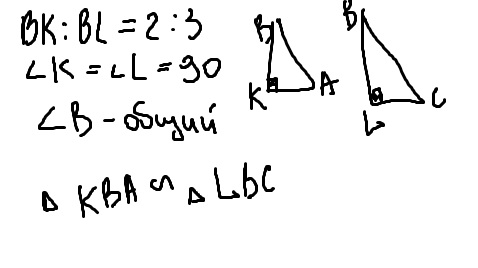 BK : BL = 2 : 3
∠K = ∠L = 90
∠B - общий
▵ KBA ∽ ▵ LBC
B
K
A
B
L
C